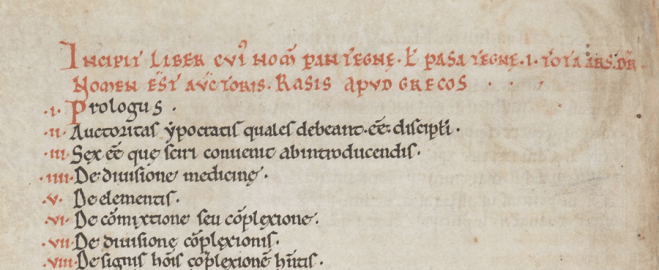 INCIPIT LIBER CVI NOM̄ PANTEGNE. ł PASA TEGNE. I. TOTA ARS. DR̄
NOMEN EST AVCTORIS. RASIS APVD GRECOS
.i. Prologus .
.ii. Auctoritas ẏpocratis quales debeant. eē. discipłi.
.iii. Sex eē que sciri conuenit abintroducendis.
.iiii. De diuisione medicinę.
.v. De elementis.
.vi. De cōmixtione seu cōplexione.
.vii. De diuisione cōplexionis.
.viii. De signis hōis cōplexionē